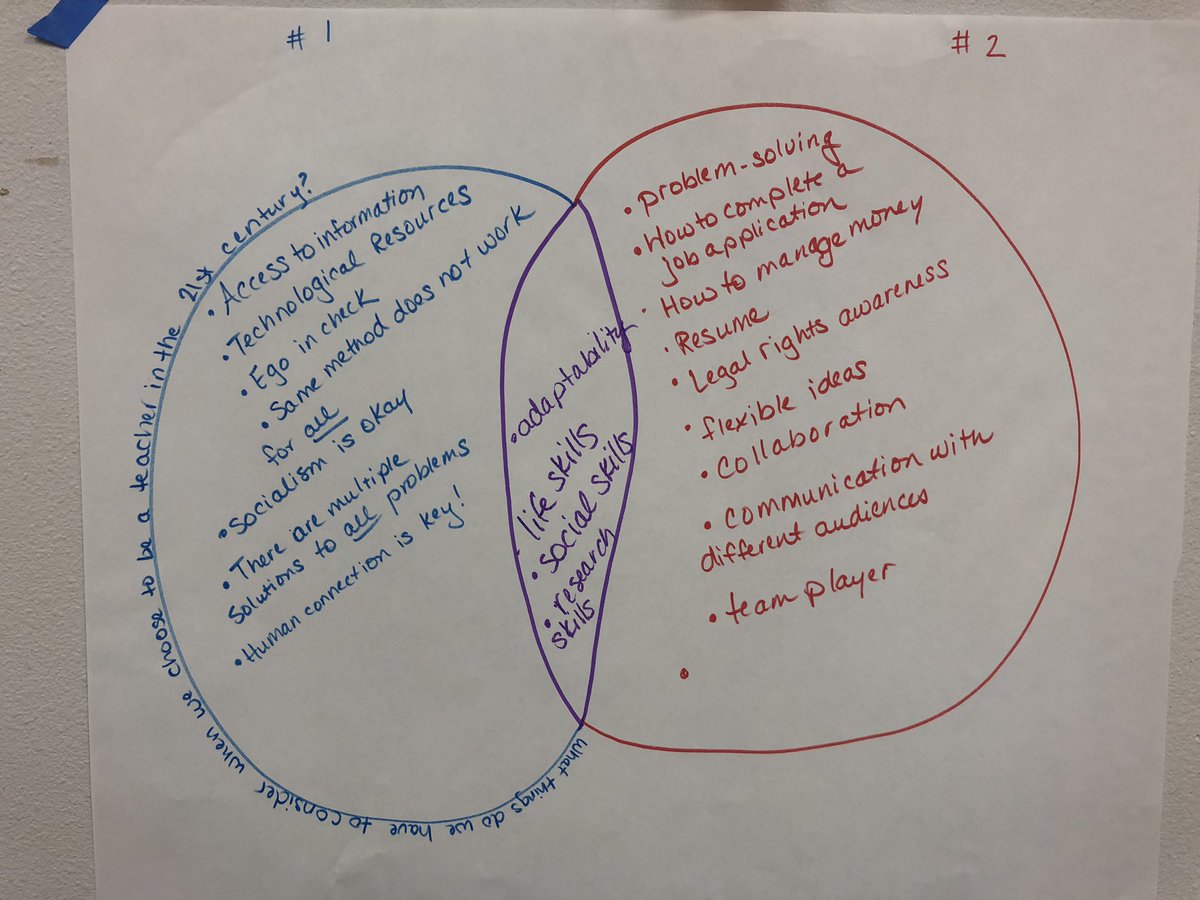 # 1
# 2
what things do we have to consider when we choose to be a teacher in the 21st century?
• Access to information
• Technological Resources
• Ego in check
• Same method does not work
for all
• Socialism is okay
• There are multiple
Solutions to all problems
• Human connection is key!
• adaptability
• life skills
• social skills
• research
skills
• problem-solving
• How to complete a
job application
• How to manage money
• Resume
• Legal rights awareness
• flexible ideas
• Collaboration
• Communication with
different audiences
• team player
•